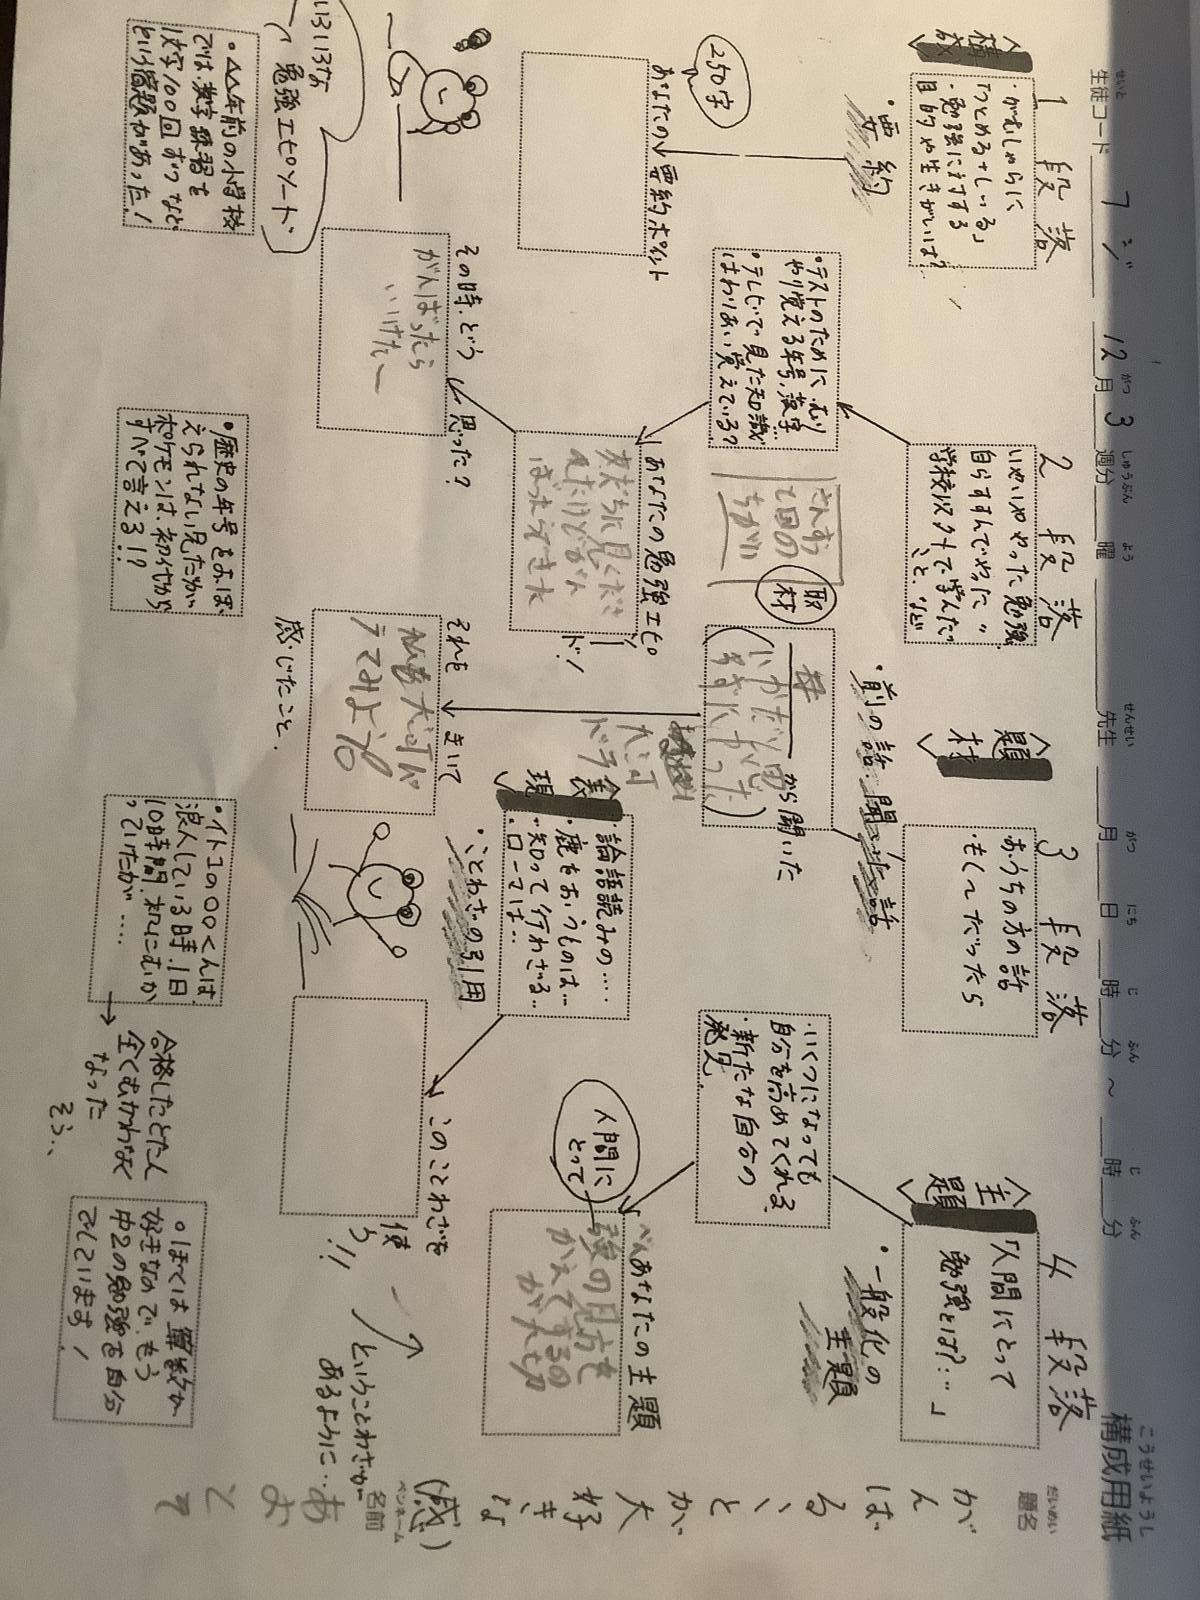 構成用紙
こうせいようし
生徒コード フジ 12月3週分 曜 先生 月 日 時 分 ~ 時 分
せいと がつ しゅうぶん よう せんせい がつ にち じ ふん じ ふん
題名
だいめい
がんばる、とが大好きな(感)
名前
ペンネーム
1 段落
<構成>
・がむしゃらに
「つとめる+しいる」
・勉強に対する
目的や生きがいは?
・要約
250字
あなたの要約ポイント
いろいろな
勉強エピソード
・△△年前の小学校
では、漢字練習を
1文字100回ずつなど
という宿題があった!
2 段落
いやいややった勉強
自らすすんでやった〃
学校以外で学んだ
こと、など
・テストのために、むり
やり覚える年号、漢字…
・テレビで見た知識
はわりあい覚えている?
さんすう
と国の
ちがい
あなたの勉強エピソード!
その時、どう思った?
がんばったら
いいけた
・歴史の年号をおぼ
えられない兄たが
ポケモンは、初代から
すべて言える!?
<題材>
3 段落
おうちの方の話
もし~だったら
・前の話 聞いた話
取材
母
から聞いた
それをきいて
感じたこと、
<表現>
・論語読みの……
・鹿をおうものは…
・知って行わざる…
・ローマは…
・ことわざの引用
このことわざを
使う!!
ということわざが
あるように…
・イトコの○○くんは、
浪人している時、1日
10時間、机にむか
っていたが……
合格したとたん
全くむかわなく
なった
そう、、
<主題>
4 段落
「人間にとって
勉強とは?…」
・一般化の
主題
・いくつになっても
自分を高めてくれる
・新たな自分の
発見、
人間に
とって
あなたの主題
べん
強の見方を
かえてするの
が大切
・ぼくは算数が
好きなので、もう
中2の勉強を自分
でしています!